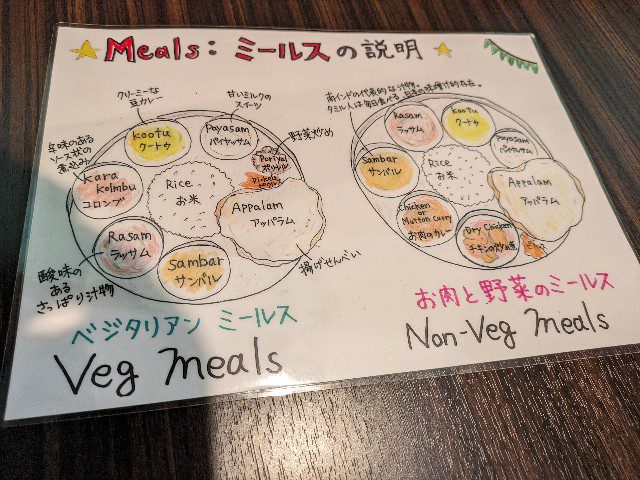 Meals: ミールスの説明
クリーミーな
豆カレー
甘いミルクの
スイーツ
野菜炒め
辛味のある
ソース状の
煮込み
kootu
クートゥ
Payasam
パイヤサム
Poriyal
ポリヤル
kara
kolmbu
コロンブ
Rice
お米
Appalam
アッパラム
Rasam
ラッサム
Sambar
サンバル
揚げせんべい
酸味の
ある
さっぱり汁物
ベジタリアン ミールス
Veg Meals
南インドの代表的な汁物。
タミル人は毎日食べる。日本の味噌汁的存在。
Rasam
ラッサム
kootu
クートゥ
Payasam
パイヤサム
Sambar
サンバル
Rice
お米
Appalam
アッパラム
Chicken
or
Mutton Curry
お肉のカレー
Dry Chicken
お肉と野菜のミールス
Non-Veg Meals